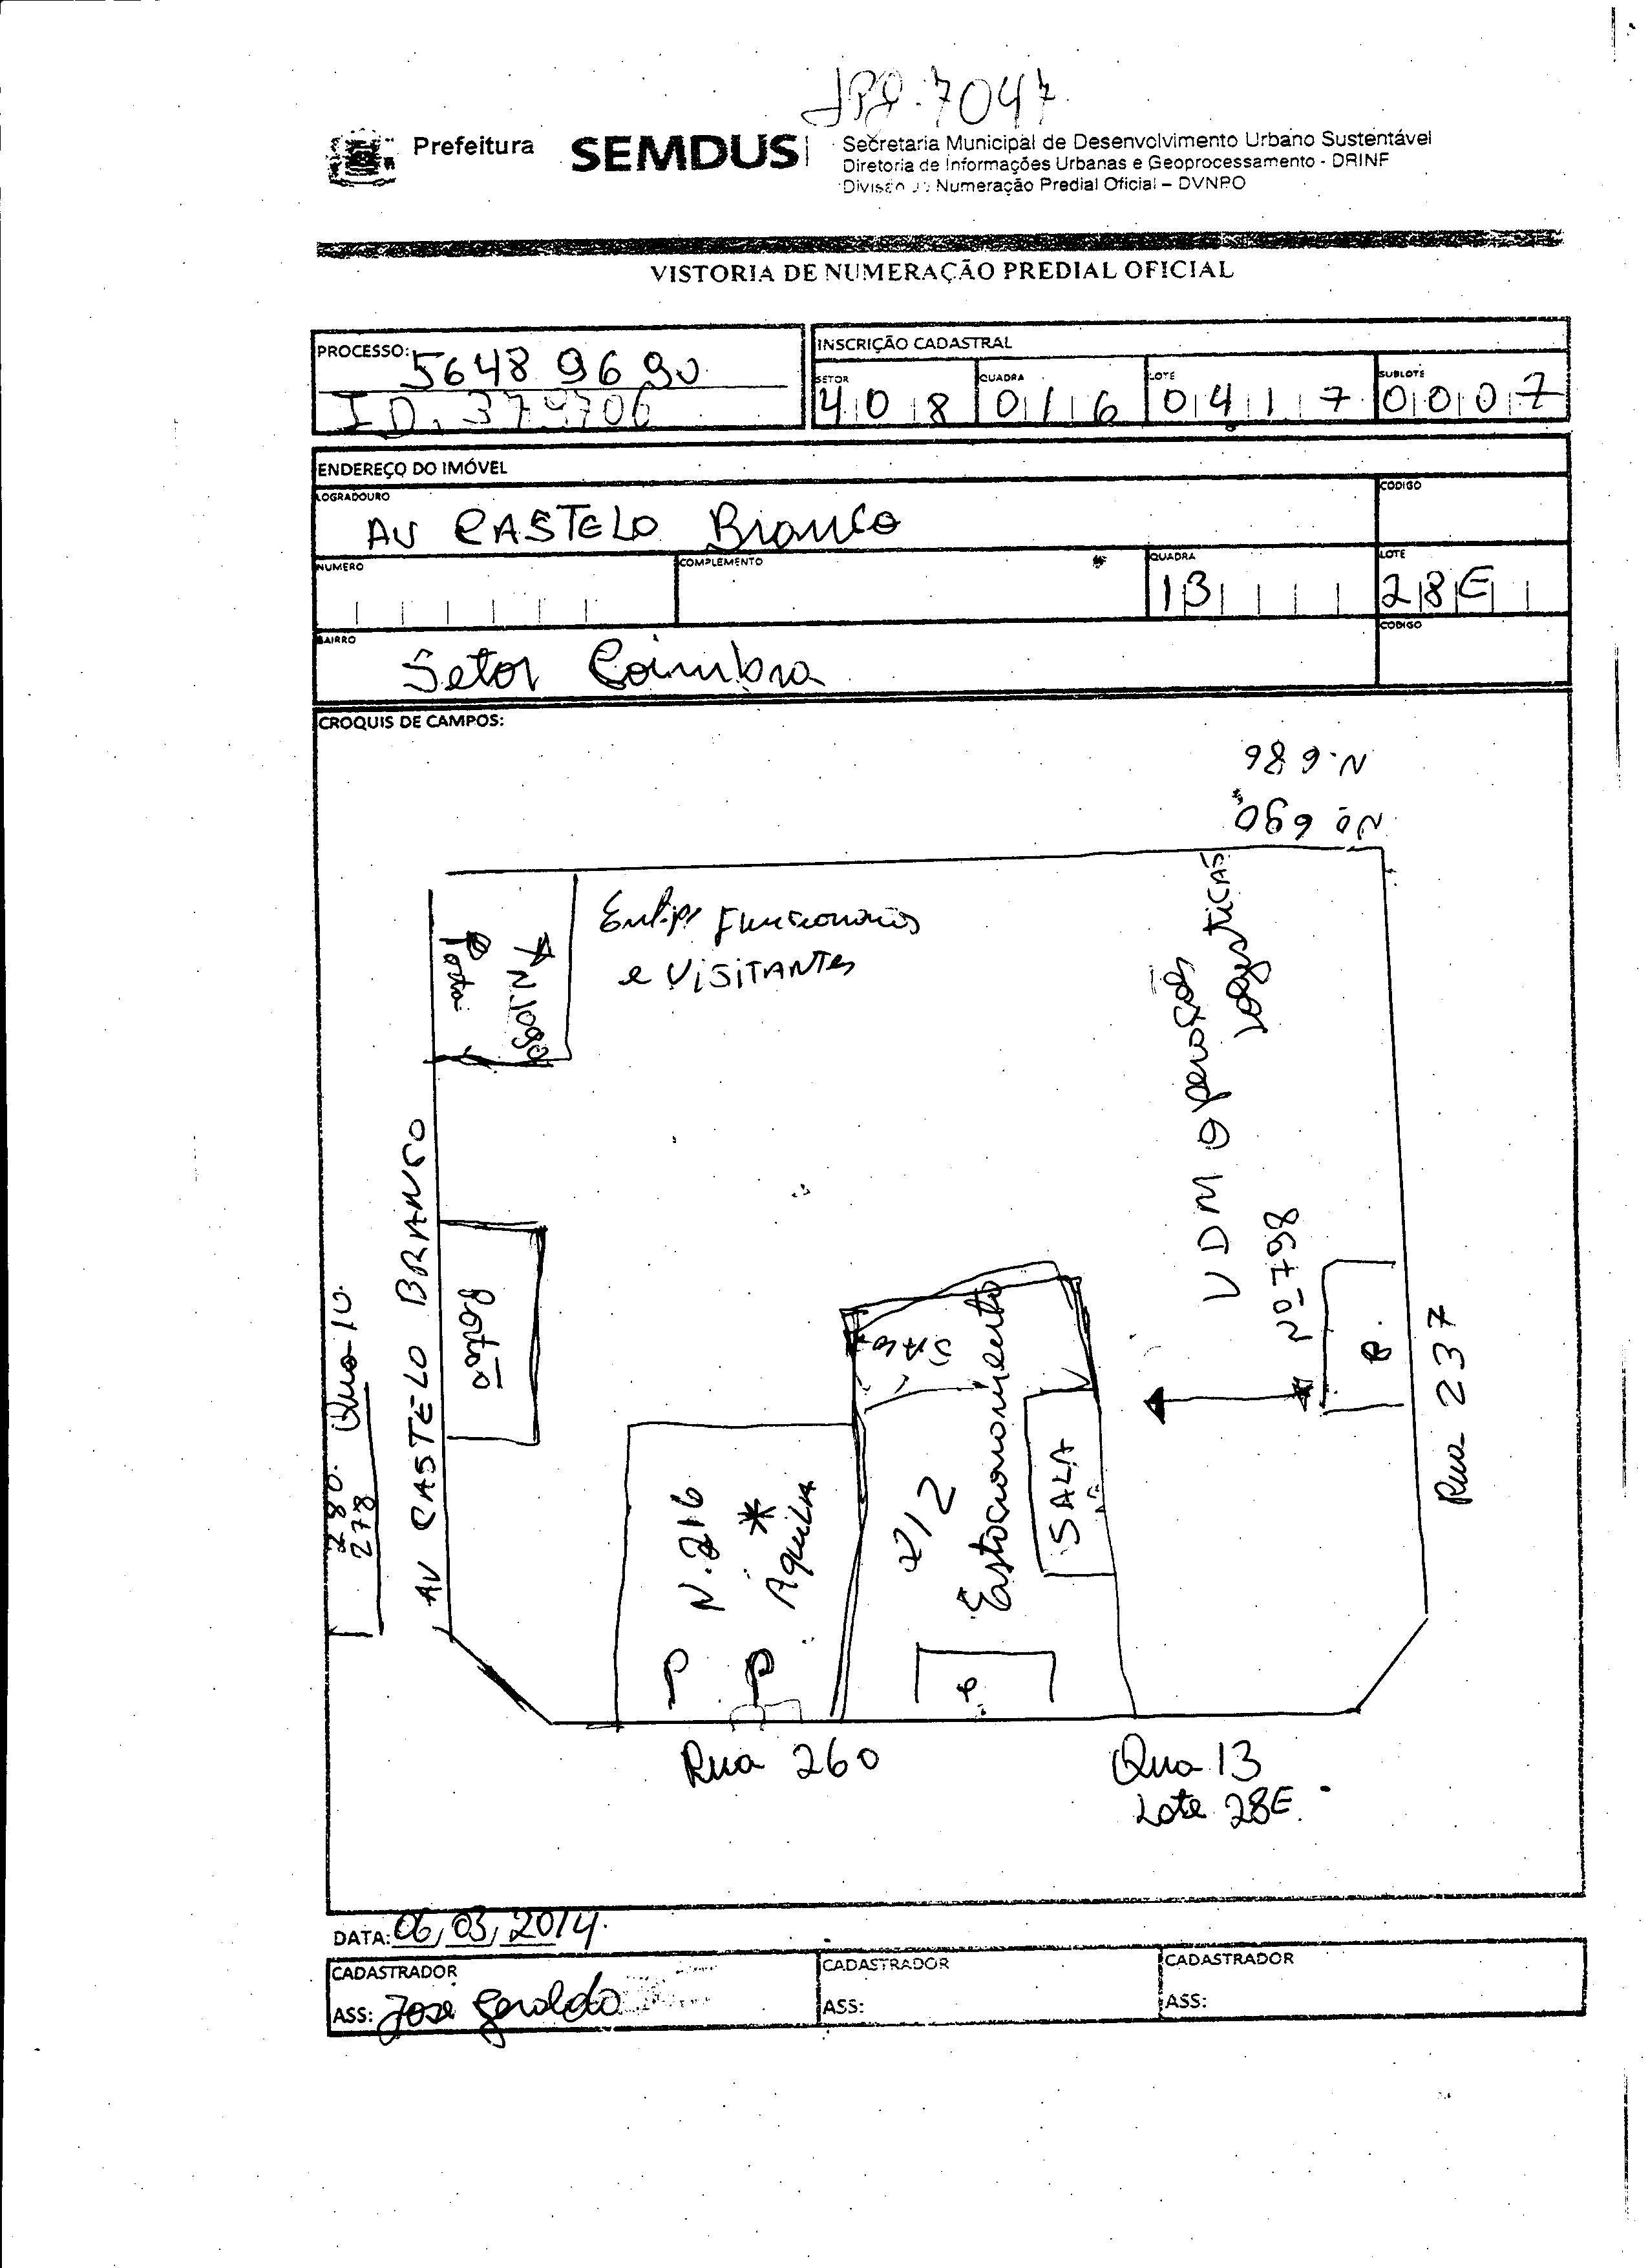 7047
Prefeitura SEMDUS Secretaria Municipal de Desenvolvimento Urbano Sustentável
Diretoria de Informações Urbanas e Geoprocessamento - DRINF
Divisão de Numeração Predial Oficial – DVNPO
VISTORIA DE NUMERAÇÃO PREDIAL OFICIAL
PROCESSO: 5648 96 90
ID. 379706
INSCRIÇÃO CADASTRAL
SETOR QUADRA LOTE SUBLOTE
408 016 0417 0007
ENDEREÇO DO IMÓVEL
LOGRADOURO CODIGO
AV CASTELO Branco
NUMERO COMPLEMENTO QUADRA LOTE
13 28E
BAIRRO CODIGO
Setor Coimbra
CROQUIS DE CAMPOS:
N. 686
Nº 690
Funcionarios
e VISITANTES
Porta
N. 1090
VDM Operações
Logisticas
Nº 798
AV CASTELO BRANCO
Portão
Qua 10.
280.
278
SALA
Estacionamento
212
SALA
N. 216
Aquilia
P P
P
P.
Rua 237
Rua 260
Qua 13
Lote 28E.
DATA: 06/03/2014
CADASTRADOR CADASTRADOR CADASTRADOR
ASS: Jose Geraldo ASS: ASS: